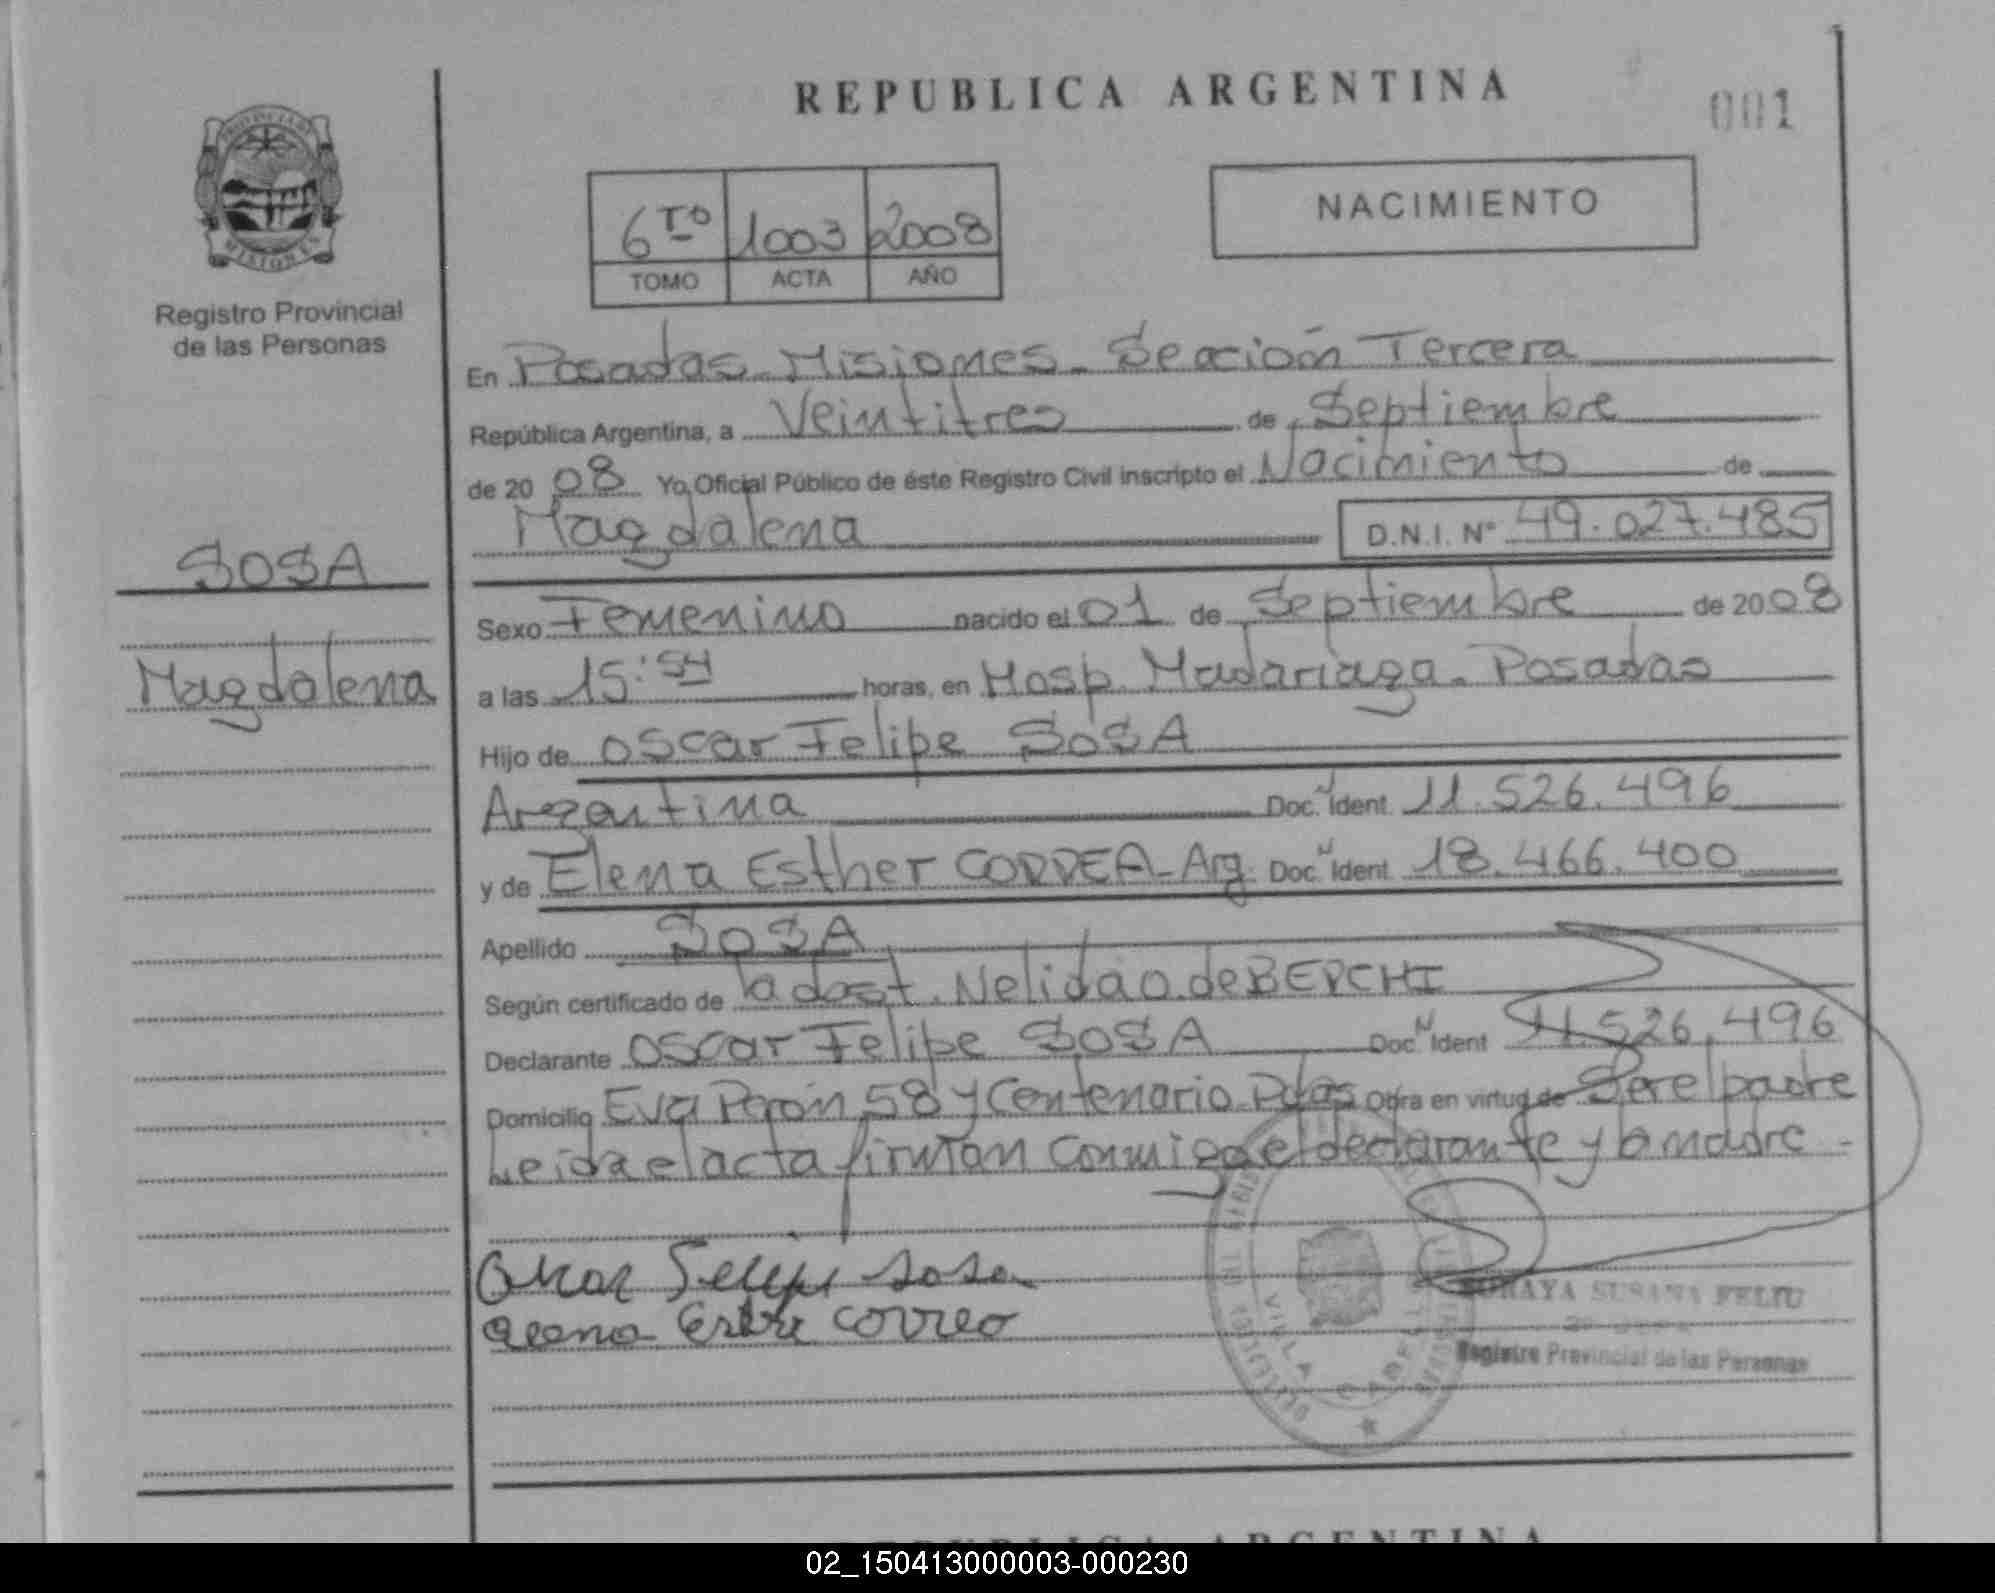 REPUBLICA ARGENTINA
001
PROVINCIA DE
MISIONES
Registro Provincial
de las Personas
6TO 1003 2008
TOMO ACTA AÑO
NACIMIENTO
En Posadas. Misiones. Sección Tercera
República Argentina, a Veintitres de Septiembre
de 2008 Yo, Oficial Público de éste Registro Civil inscripto el Nacimiento de
Magdalena D.N.I. N° 49.027.485
SOSA
Magdalena
Sexo Femenino nacido el 01 de Septiembre de 2008
a las 15:54 horas, en Hosp. Madariaga. Posadas
Hijo de Oscar Felipe SOSA
Argentina Doc. N Ident. 11.526.496
y de Elena Esther CORREA - Arg. Doc. N Ident. 18.466.400
Apellido SOSA
Según certificado de la obst. Nelida O. de BERCHI
Declarante Oscar Felipe SOSA Doc. N Ident 11.526.496
Domicilio Eva Perón 58 y Centenario. Pdas Obra en virtud de Ser el padre
Leida el acta firman conmigo el declarante y la madre -
Oscar Felipe Sosa
Elena Ester Correo
VILLA CABELLO
SORAYA SUSANA FELIU
Registro Provincial de las Personas
REPUBLICA ARGENTINA
02_150413000003-000230